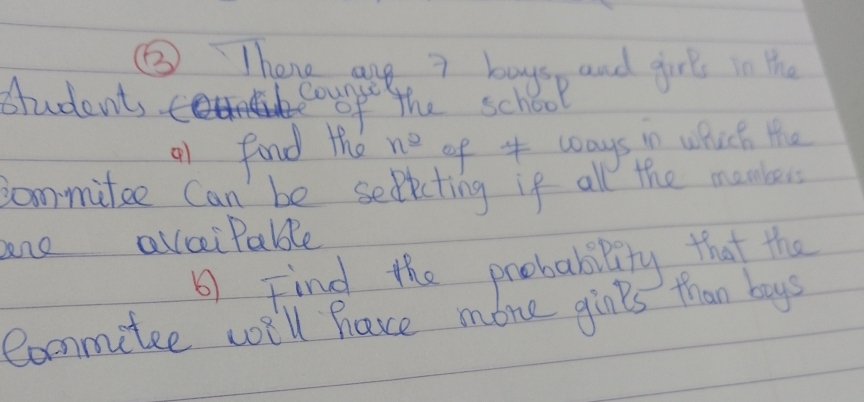 ③ There are 7 boys, and girls in the
students council of the school
a) find the nº of ≠ ways in which the
commitee can be selecting if all the members
are available
b) Find the probability that the
Commitee will have more girls than boys